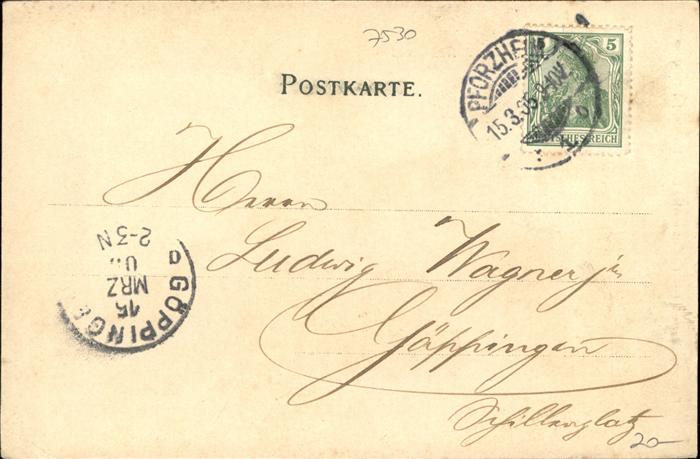 7530
POSTKARTE.
5
DEUTSCHES REICH
PFORZHEIM
15.3.05. 9-10V.
Herrn
Ludwig Wagner jr.
Göppingen
Schillerplatz
20-
GÖPPINGEN
15
MRZ
2-3N